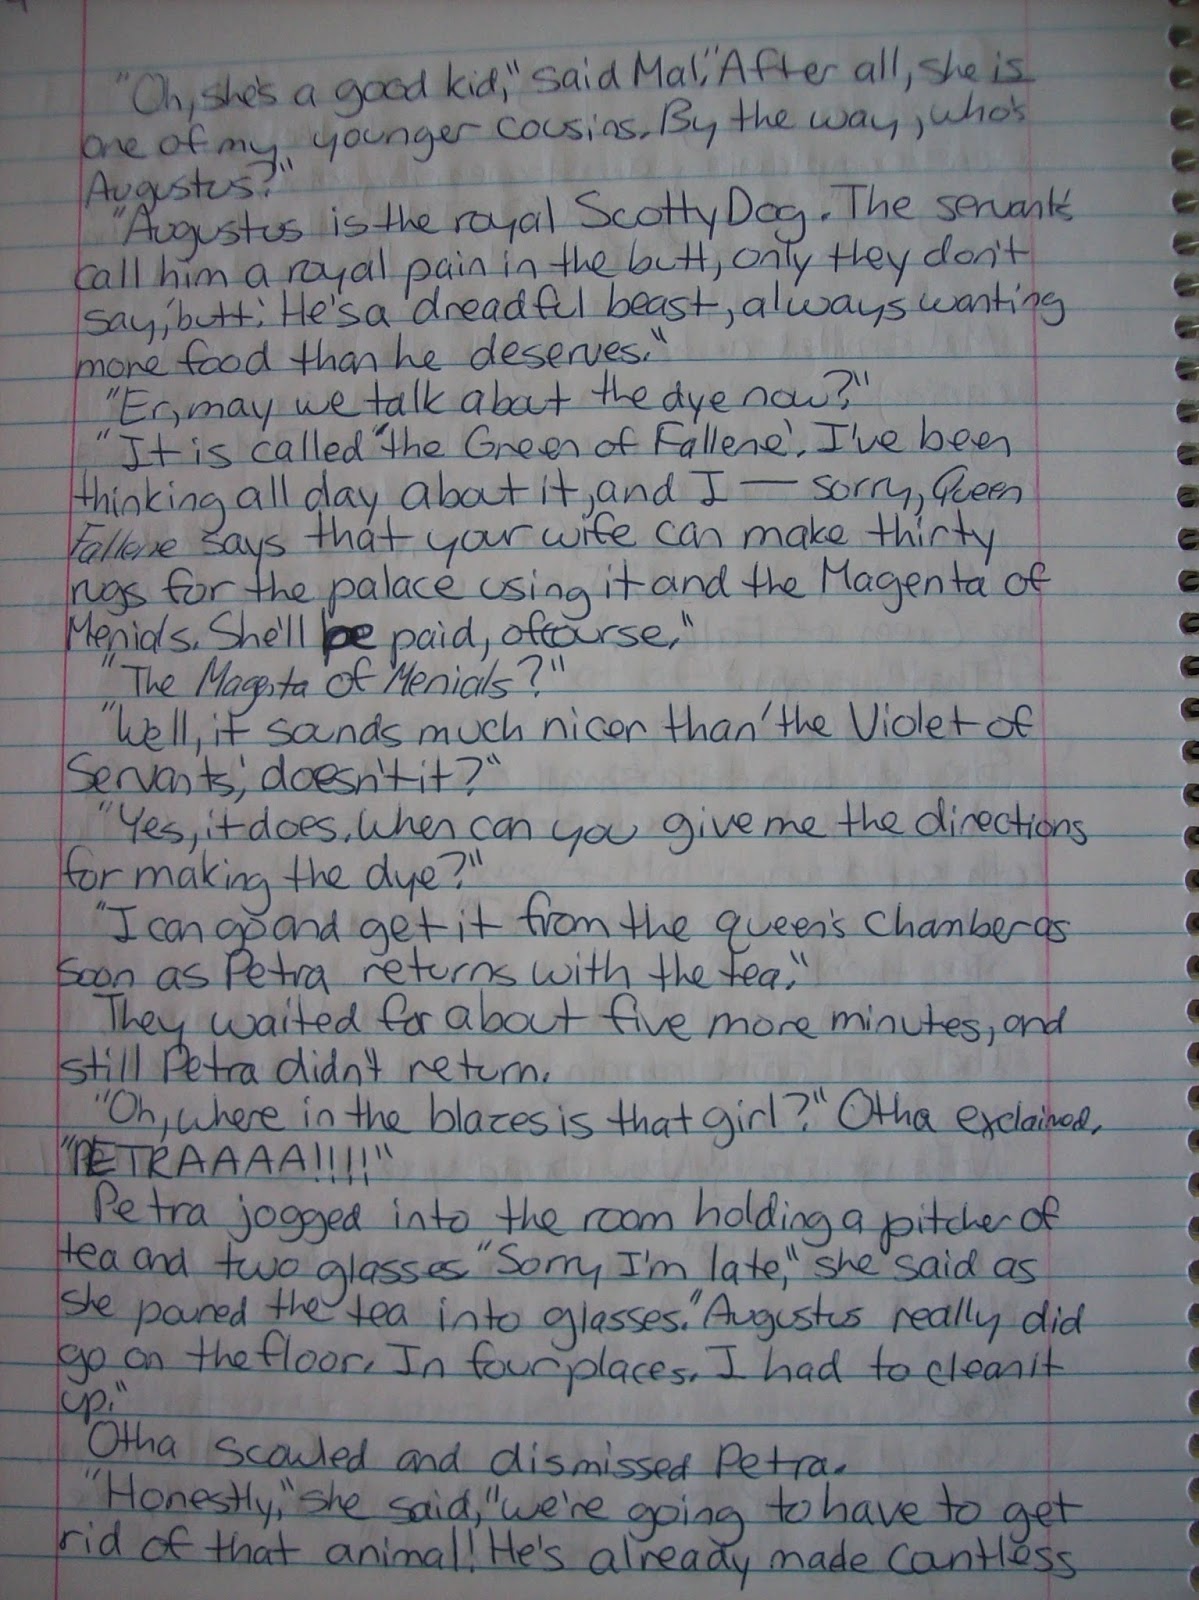 "Oh, she's a good kid," said Mal. "After all, she is
one of my younger cousins. By the way, who's
Augustus?"
"Augustus is the royal Scotty Dog. The servants
call him a royal pain in the butt, only they don't
say, 'butt.' He's a dreadful beast, always wanting
more food than he deserves."
"Er, may we talk about the dye now?"
"It is called 'the Green of Fallene'. I've been
thinking all day about it, and I — sorry, Queen
Fallene says that your wife can make thirty
rugs for the palace using it and the Magenta of
Menials. She'll be paid, of course."
"The Magenta of Menials?"
"Well, it sounds much nicer than 'the Violet of
Servants,' doesn't it?"
"Yes, it does. When can you give me the directions
for making the dye?"
"I can go and get it from the queen's chamber as
soon as Petra returns with the tea."
They waited for about five more minutes, and
still Petra didn't return.
"Oh, where in the blazes is that girl?" Otha exclaimed.
"PETRAAAA!!!!"
Petra jogged into the room holding a pitcher of
tea and two glasses. "Sorry I'm late," she said as
she poured the tea into glasses. "Augustus really did
go on the floor. In four places. I had to clean it
up."
Otha scowled and dismissed Petra.
"Honestly," she said, "we're going to have to get
rid of that animal! He's already made countless